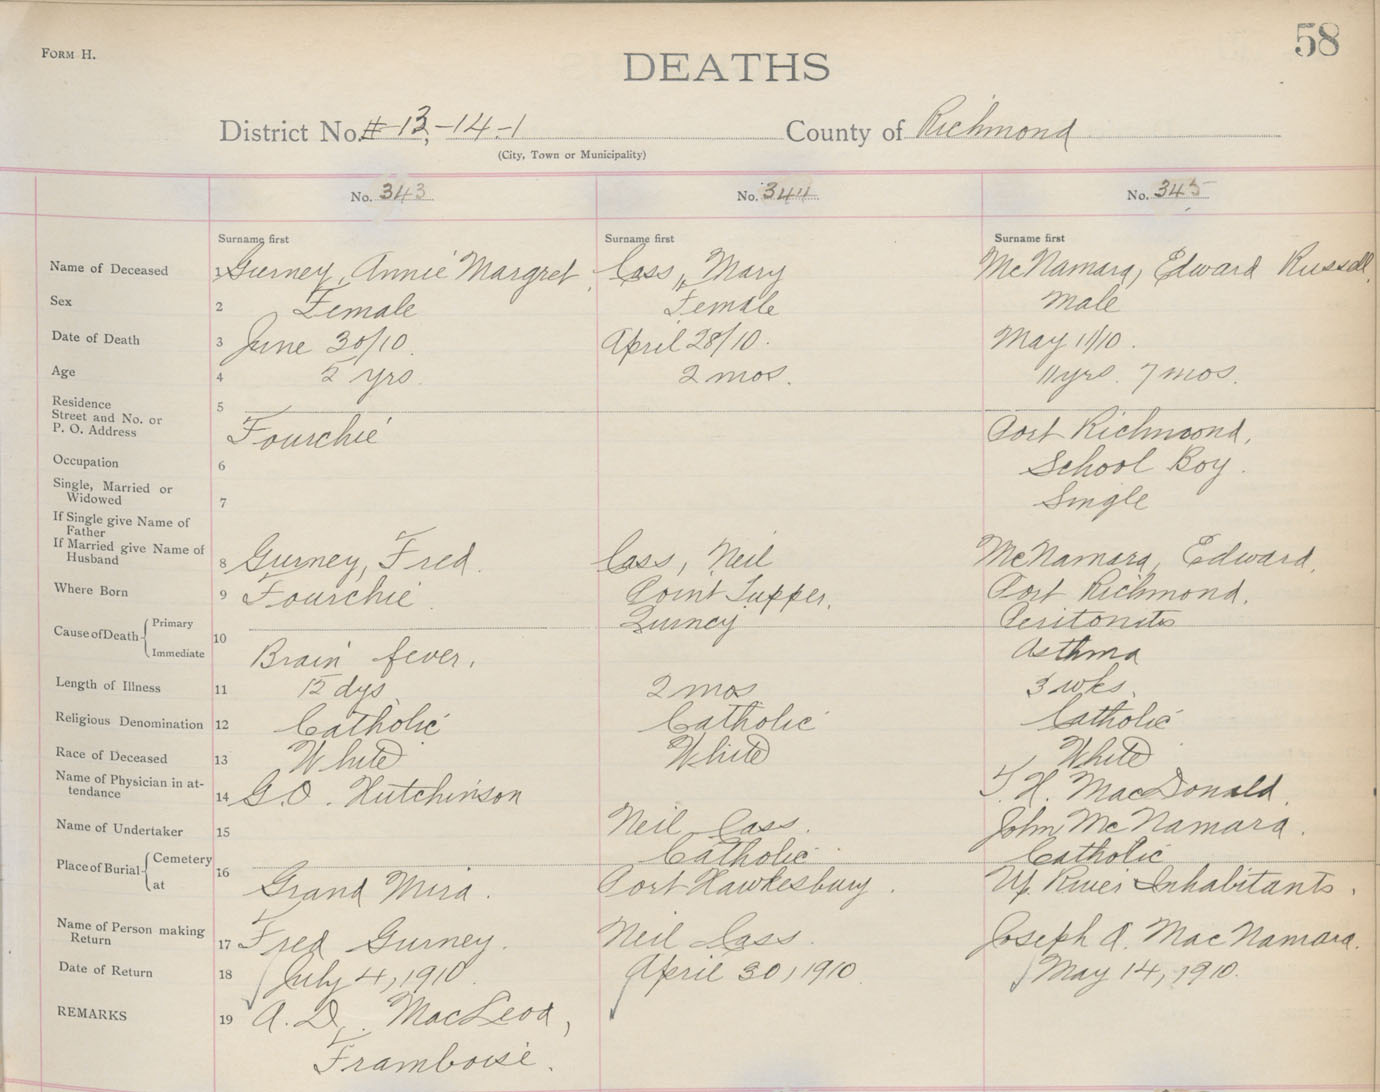 58
FORM H.
DEATHS
District No. # 13,-14-1 County of Richmond
(City, Town or Municipality)
No. 343 No. 344 No. 345
Surname first Surname first Surname first
Name of Deceased 1 Gurney, Annie Margret Cass, Mary McNamara, Edward Russell
Sex 2 Female Female Male
Date of Death 3 June 30/10. April 28/10. May 11/10.
Age 4 2 yrs. 2 mos. 11 yrs. 7 mos.
Residence 5
Street and No. or
P. O. Address Fourchie Port Richmond,
Occupation 6 School Boy.
Single, Married or
Widowed 7 Single
If Single give Name of
Father
If Married give Name of
Husband 8 Gurney, Fred. Cass, Neil McNamara, Edward.
Where Born 9 Fourchie. Point Tupper, Port Richmond.
Cause of Death Primary 10 Quincy Peritonitis
Immediate Brain fever, Asthma
Length of Illness 11 12 dys. 2 mos 3 wks.
Religious Denomination 12 Catholic Catholic Catholic
Race of Deceased 13 White White White
Name of Physician in at-
tendance 14 G.O. Hutchinson MacDonald
Name of Undertaker 15 Neil Cass. John McNamara.
Place of Burial Cemetery 16 Catholic Catholic
at Grand Mira. Port Hawkesbury. River Inhabitants.
Name of Person making
Return 17 Fred Gurney. Neil Cass. Joseph A. MacNamara.
Date of Return 18 July 4, 1910. April 30, 1910. May 14, 1910.
REMARKS 19 A. D. MacLeod,
Framboise.